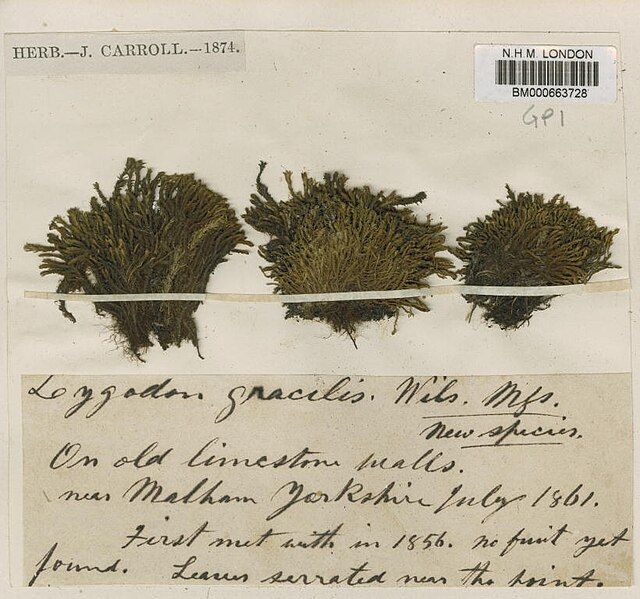 HERB.—J. CARROLL.—1874.
N.H.M. LONDON
BM000663728
GP1
Zygodon gracilis. Wils. Mss.
New species.
On old limestone walls.
near Malham Yorkshire July 1861.
First met with in 1856. no fruit yet
found. Leaves serrated near the point.